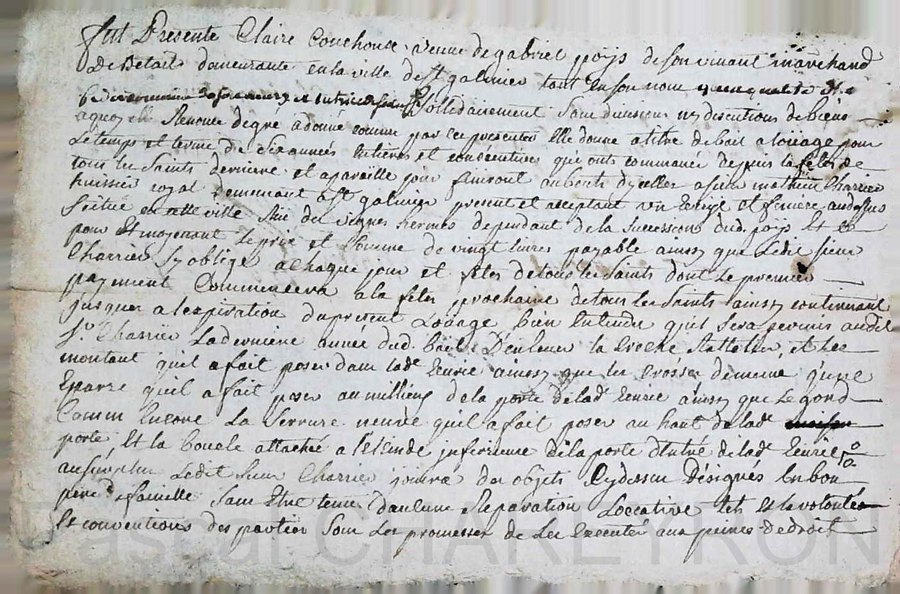 fut Presente Claire Couchouse veuve de gabriel poÿs de son vivant marchand
de Betail demeurante en la ville de st galmier tant en son nom
Sollidairement sans division ny discutions de biens
aquoy elle Renonce degre a donné comme par ces presentes Elle donne a titre de bail a louage pour
Le temps et terme de dix années entieres et consécutives qui ont commancé depuis la fete de
tous les Saints derniere et a pareille jour finiront au bout d'icelles a sieur mathieu Charrier
huissier royal demeurant a st galmier present et acceptant un et feniere au dessus
Scitué en cette ville Rue des vignes hermes dependant de la Succession dud. poÿs Et ce
pour Et moyenant le prix et Somme de vingt livres payable ainsy que Ledit sieur
Charrier Sy oblige a chaque jour et fete de tous les Saints dont Le premier
payement Commencera a la fete prochaine de tous les Saints ainsy continuant
jusques a l'expiration du present Louage bien Entendu qu'il sera permis audit
Sr. Charrier La derniere année dud. bail D'enlever la Creche Rattelier, et Les
montant qu'il a fait poser dans lade Ecurie ainsy que les crosses de meme qu'une
Eparre qu'il a fait poser au millieu de la porte de lade Ecurie ainsy que Le gond
Comme Encore La Serrure neuve qu'il a fait poser au haut de lade
porte Et la boucle attaché a inferieure de la porte d'entrée de lade Ecurie
au surplus Ledit Sieur Charrier jouira des objets Cydessus Désignés En bon
pere de famille Sans Etre tenu D'aucune Reparation Locative tel Et la volonté
Et conventions des parties Sous Les promesses de Les Executer aux peines de droit
Pascal CHAREYRON